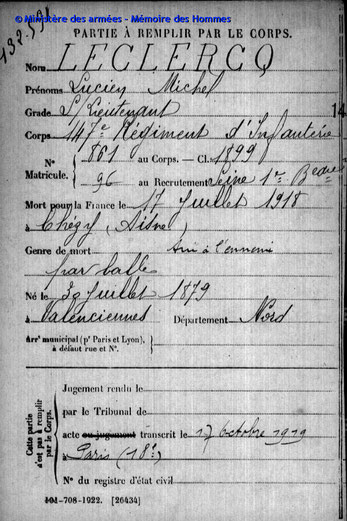 © Ministère des armées - Mémoire des Hommes
PARTIE À REMPLIR PAR LE CORPS.
Nom LECLERCQ
Prénoms Lucien Michel
Grade S/Lieutenant
14
Corps 147e Régiment d'Infanterie
N° Matricule. { 861 au Corps. — Cl. 1899
96 au Recrutement Seine 1er Bureau
Mort pour la France le 17 Juillet 1918
à Chézy (Aisne)
Genre de mort Tué à l'ennemi
par balle
Né le 30 Juillet 1879
à Valenciennes Département Nord
Arrt municipal (pr Paris et Lyon),
à défaut rue et N°.
Cette partie n'est pas à remplir par le Corps.
Jugement rendu le
par le Tribunal de
acte ou jugement transcrit le 17 octobre 1919
à Paris (18e)
N° du registre d'état civil
101-708-1922. [26434]